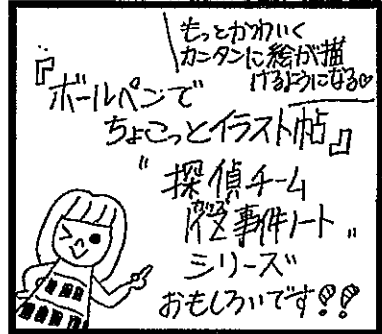 もっとかわいく
カンタンに絵が描
けるようになる♡
『ボールペンで
ちょこっとイラスト帖』
"探偵チーム
事件ノート"
シリーズ
おもしろいです!!